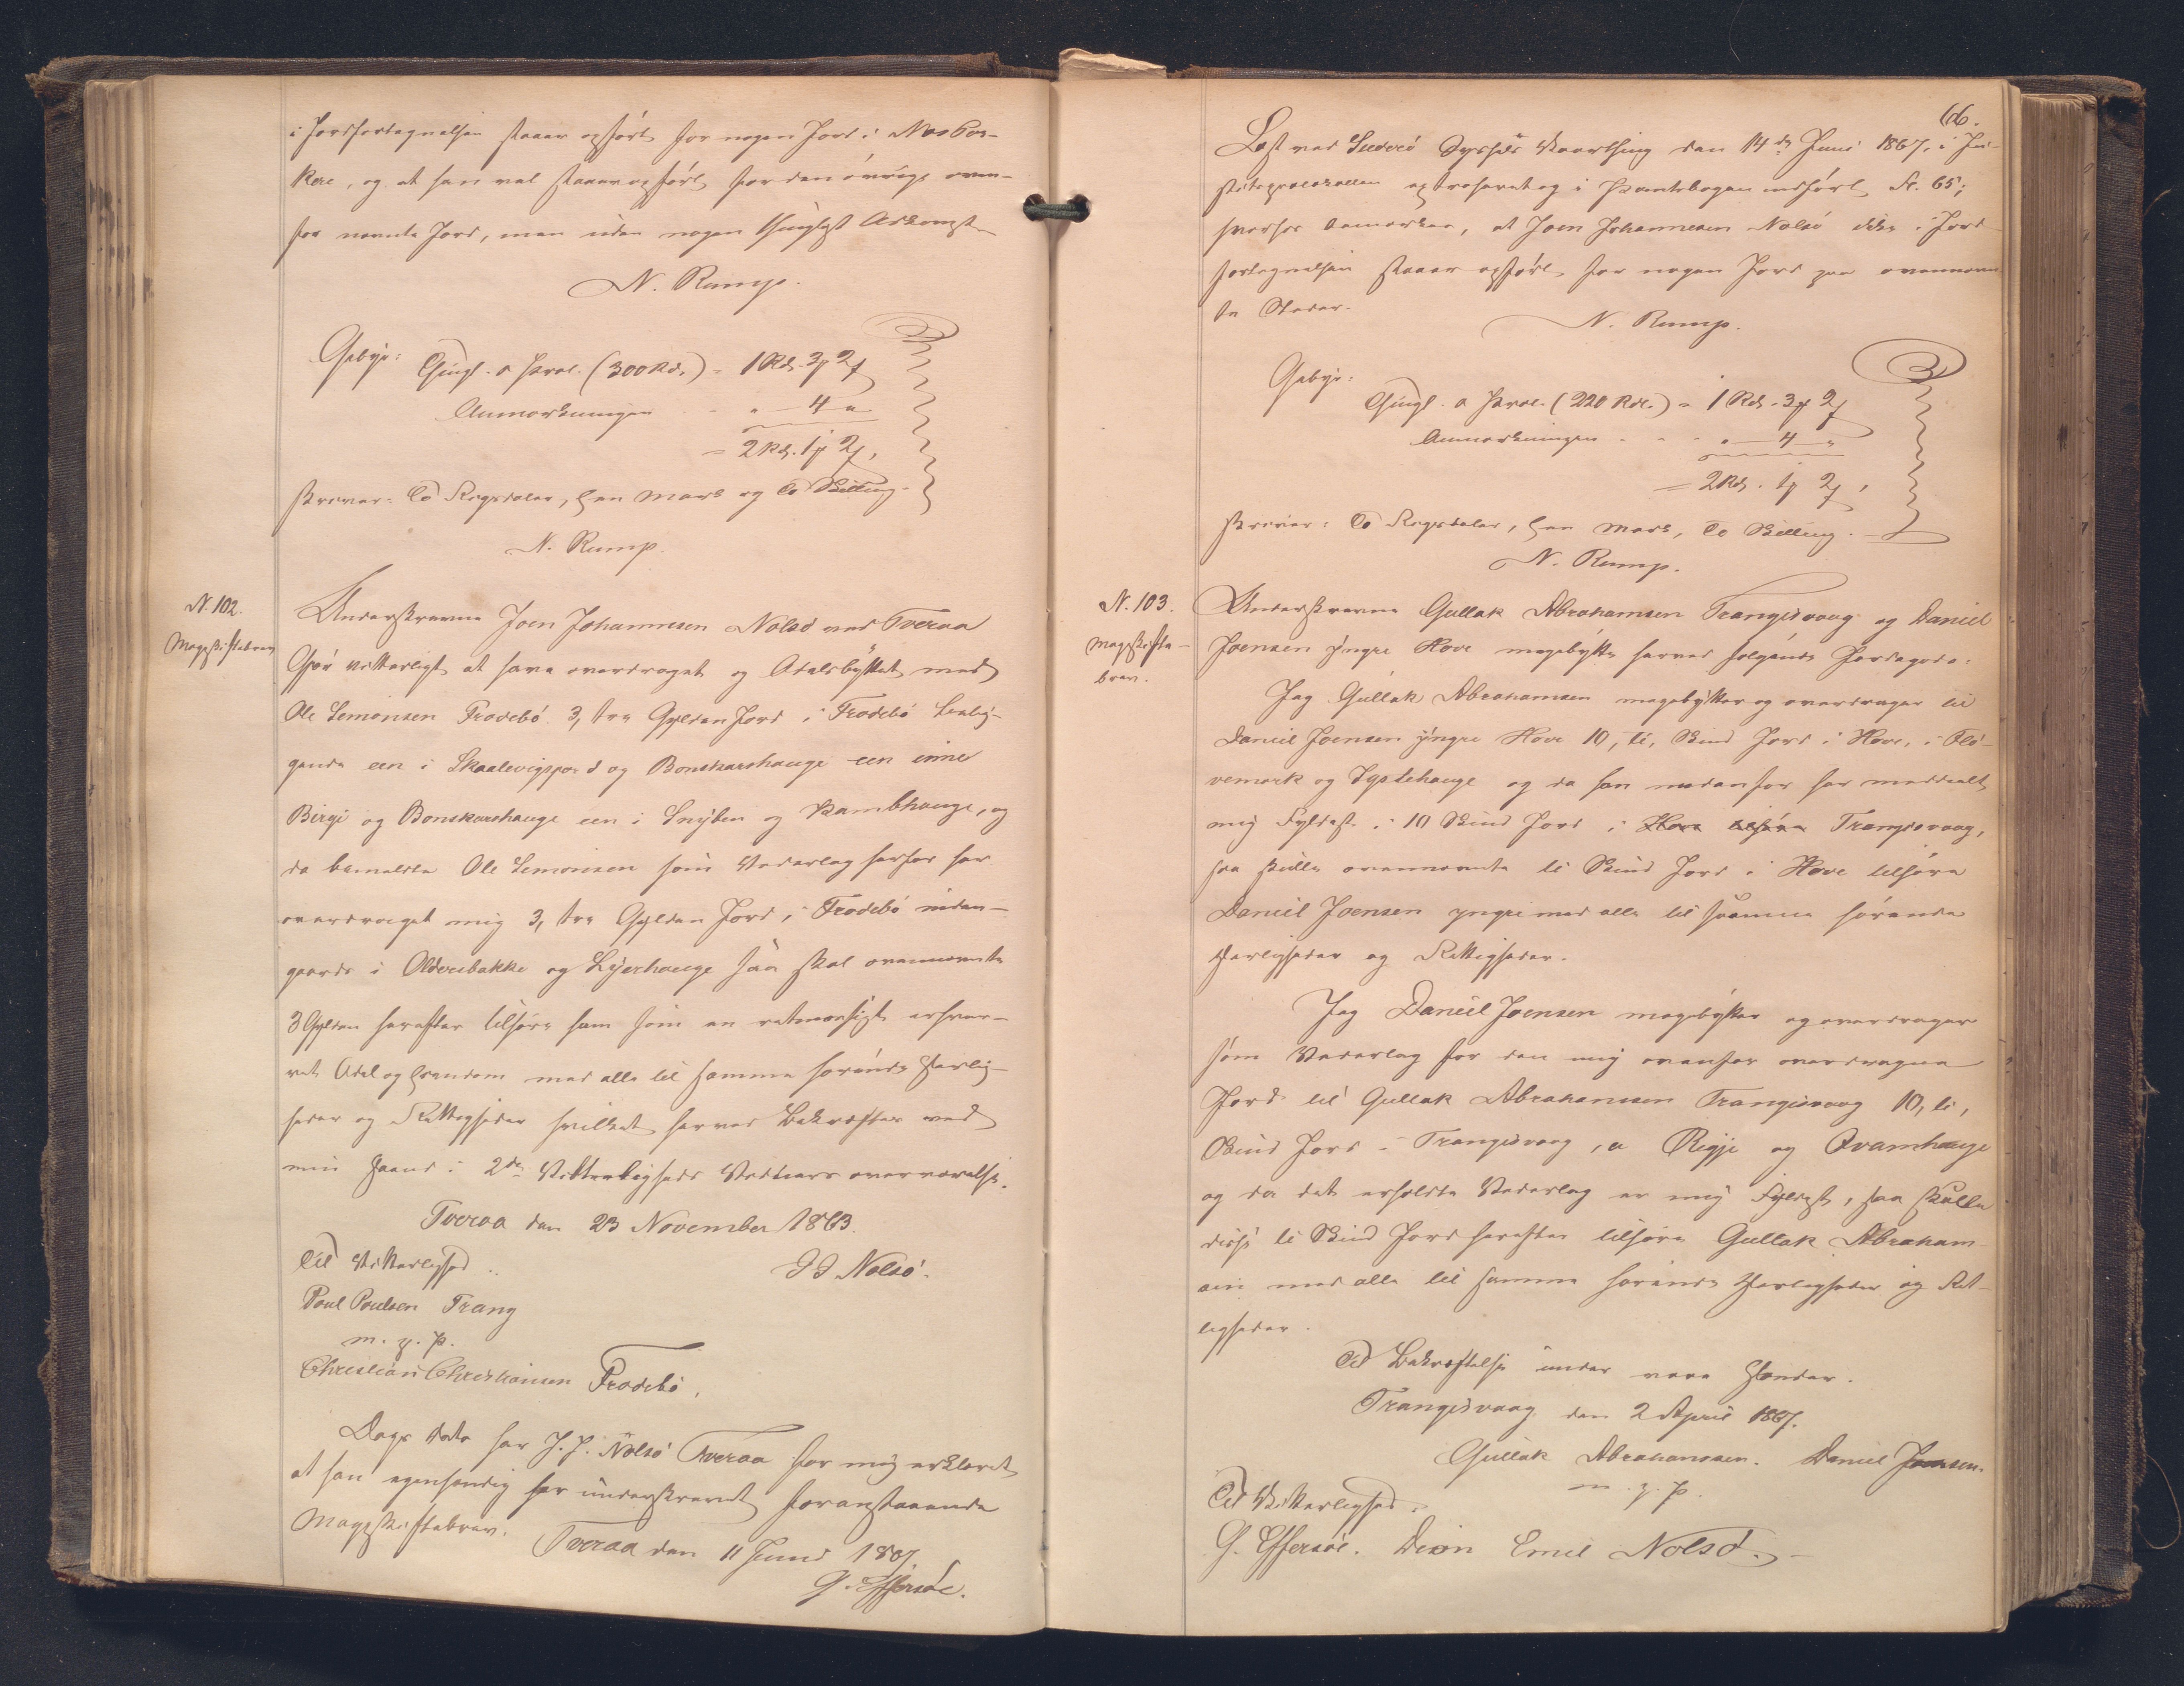 i Jordfortegnelsen staaer opført for nogen Jord i
og at han vel staaer opført for den øvrige oven-
for nævnte Jord, men uden nogen thinglyst Adkomst
N. Rump.
Gebyr: Thingl. o Prot. (300 Rd.) = 1 Rd. 3 # 2 f
Anmærkningen " 4 "
= 2 Rd. 1 # 2 f,
skriver: To Rigsdaler, Een Mark og To Skilling.
N. Rump.
N. 102.
Mageskiftebrev
Underskrevne Joen Johannesen Nolsö ved Tveraa
Gjør vitterligt at have overdraget og Odelsbyttet med
Ole Semonsen Frodebö 3, tre Gylden Jord i Frodebö belig-
gende een i og Bonskarshauge een inne
Birgi og Bonskarshauge een i og Kambhauge, og
da bemeldte Ole Semonsen som Vederlag herfor har
overdraget mig 3, tre Gylden Jord i Frodebö niden-
gaards i og saa skal ovennævnte
3 Gylden herefter tilhøre ham som en retmæssigt erhver-
vet Odel og Eiendom med alle til samme hørende Herlig-
heder og Rettigheder hvilket herved Bekræfter ved
min Haand i 2de Vitterligheds Vidners overværelse.
Tveraa den 23 November 1863.
Til Vitterlighed
J J Nolsö.
Poul Poulsen Trang
m. f. P.
Christian Christiansen Frodebö.
Dags Dato har J. J. Nolsö Tveraa for mig erklæret
at han egenhændig har underskrevet foranstaaende
Mageskiftebrev.
Tveraa den 11 Juni 1867.
G. Effersöe.
66.
Læst ved Suderö Syssels Vaarthing den 14de Juni 1867, i Ju-
stitsprotokollen extraheret og i Pantebogen indført Fl. 65;
hvorhos bemærkes, at Joen Johannesen Nolsö ikke i Jord-
fortegnelsen staaer opført for nogen Jord paa ovennævn-
te Steder.
N. Rump.
Gebyr:
Thingl. o Prot. (220 Rd.) = 1 Rd. 3 # 2 f
Anmærkningen " 4 "
= 2 Rd. 1 # 2 f,
skriver: To Rigsdaler, Een Mark, To Skilling.
N. Rump.
N. 103.
Mageskifte-
brev.
Underskrevne Gullak Abrahamsen Trangisvaag og Daniel
Joensen yngre Hove magebytte herved følgende Jordegods:
Jeg Gullak Abrahamsen magebytter og overdrager til
Daniel Joensen yngre Hove 10, ti, Skind Jord i Hove, i
vemork og og da han nedenfor har meddeelt
mig Fyldest i 10 Skind Jord i Hove tilhøre Trangisvaag,
saa skulle ovennævnte ti Skind Jord i Hove tilhøre
Daniel Joensen yngre med alle til samme hørende
Herligheder og Rettigheder.
Jeg Daniel Joensen magebytter og overdrager
som Vederlag for den mig ovenfor overdragne
Jord til Gullak Abrahamsen Trangisvaag 10, ti,
Skind Jord i Trangisvaag, a Rygje og Qvamhauge
og da det erholdte Vederlag er mig Fyldest, saa skulle
disse ti Skind Jord herefter tilhøre Gullak Abraham-
sen med alle til samme hørende Herligheder og Ret-
tigheder.
Til Bekræftelse under vore Hænder.
Trangisvaag den 2 April 1867.
Gullak Abrahamsen. Daniel Joensen.
m. f. P.
Til Vitterlighed:
G. Effersöe. Emil Nolsö.